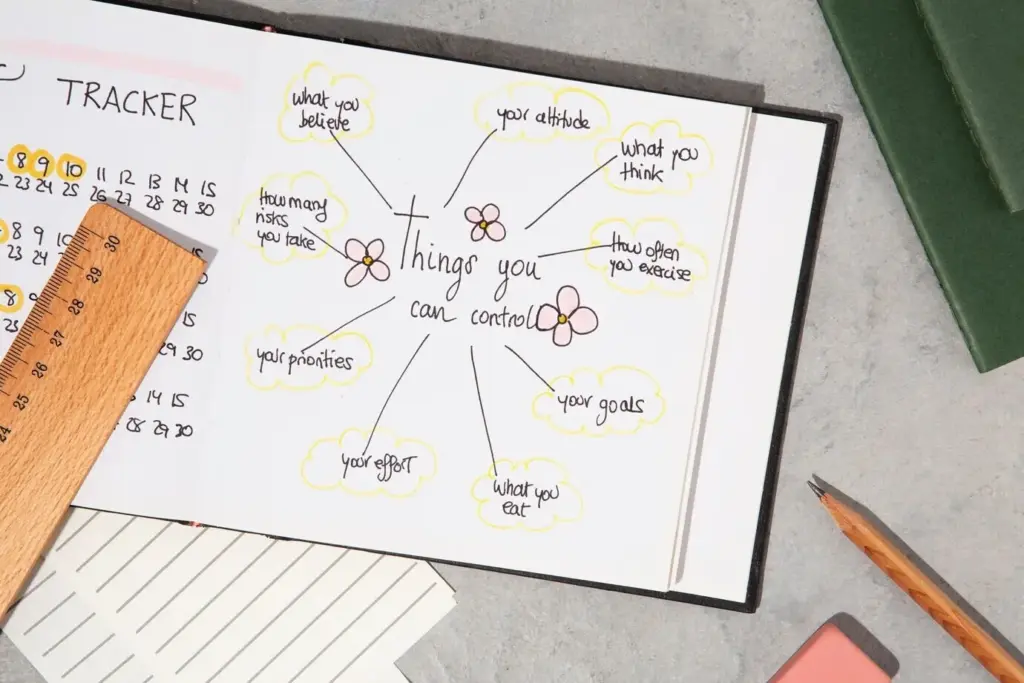 TRACKER
8 9 10 11 12 13 14 15
23 24 25 26 27 28 29 30
8 9 10
23 24
8
15
29 30
14 15
28 29 30
30
29
28
27
26
25
24
what you
believe
your attitude
what you
think
How many
risks
you take
How often
you exercise
Things you
can control
your priorities
your goals
your effort
what you
eat